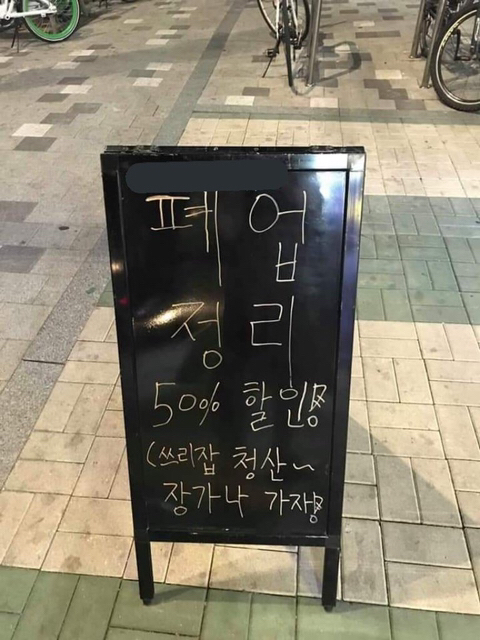 폐업
정리
50% 할인!
(쓰리잡 청산~
장가나 가자!